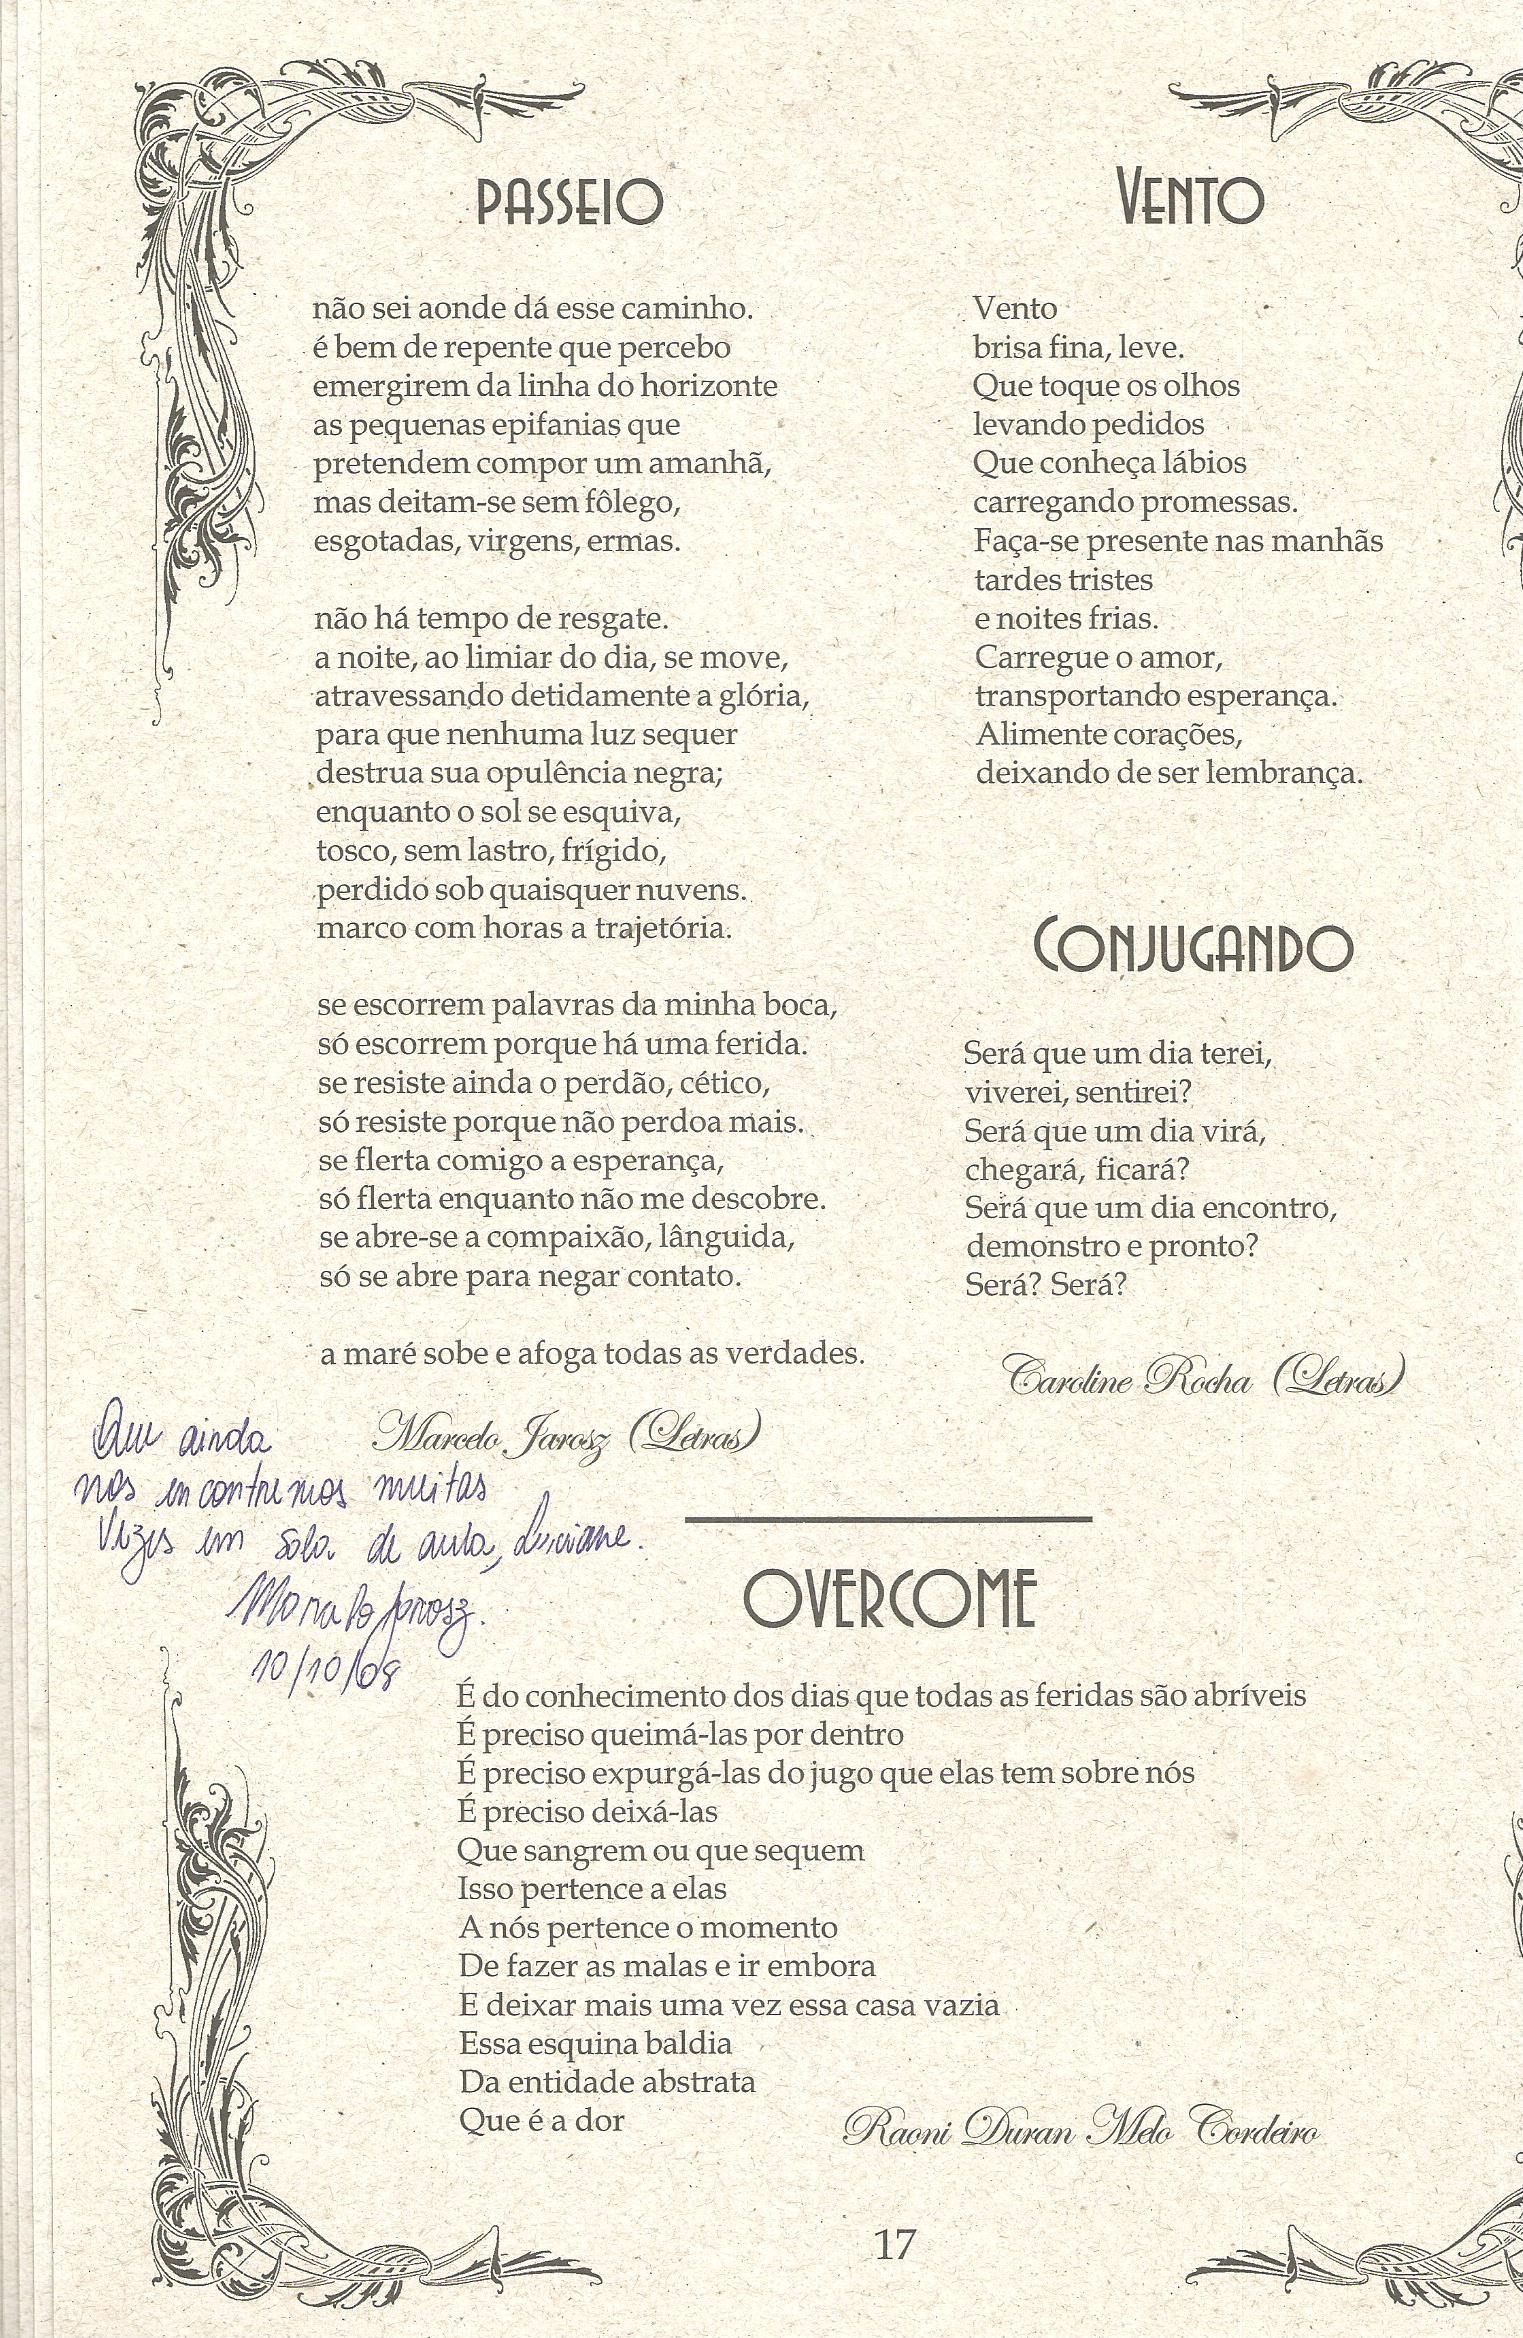 PASSEIO
não sei aonde dá esse caminho.
é bem de repente que percebo
emergirem da linha do horizonte
as pequenas epifanias que
pretendem compor um amanhã,
mas deitam-se sem fôlego,
esgotadas, virgens, ermas.
não há tempo de resgate.
a noite, ao limiar do dia, se move,
atravessando detidamente a glória,
para que nenhuma luz sequer
destrua sua opulência negra;
enquanto o sol se esquiva,
tosco, sem lastro, frígido,
perdido sob quaisquer nuvens.
marco com horas a trajetória.
se escorrem palavras da minha boca,
só escorrem porque há uma ferida.
se resiste ainda o perdão, cético,
só resiste porque não perdoa mais.
se flerta comigo a esperança,
só flerta enquanto não me descobre.
se abre-se a compaixão, lânguida,
só se abre para negar contato.
a maré sobe e afoga todas as verdades.
Marcelo Jarosz (Letras)
Que ainda
nos encontremos muitas
vezes em sala de aula, Luciane.
Marcelo Jarosz.
10/10/08
VENTO
Vento
brisa fina, leve.
Que toque os olhos
levando pedidos
Que conheça lábios
carregando promessas.
Faça-se presente nas manhãs
tardes tristes
e noites frias.
Carregue o amor,
transportando esperança.
Alimente corações,
deixando de ser lembrança.
CONJUGANDO
Será que um dia terei,
viverei, sentirei?
Será que um dia virá,
chegará, ficará?
Será que um dia encontro,
demonstro e pronto?
Será? Será?
Caroline Rocha (Letras)
OVERCOME
É do conhecimento dos dias que todas as feridas são abríveis
É preciso queimá-las por dentro
É preciso expurgá-las do jugo que elas tem sobre nós
É preciso deixá-las
Que sangrem ou que sequem
Isso pertence a elas
A nós pertence o momento
De fazer as malas e ir embora
E deixar mais uma vez essa casa vazia
Essa esquina baldia
Da entidade abstrata
Que é a dor
Raoni Duran Melo Cordeiro
17